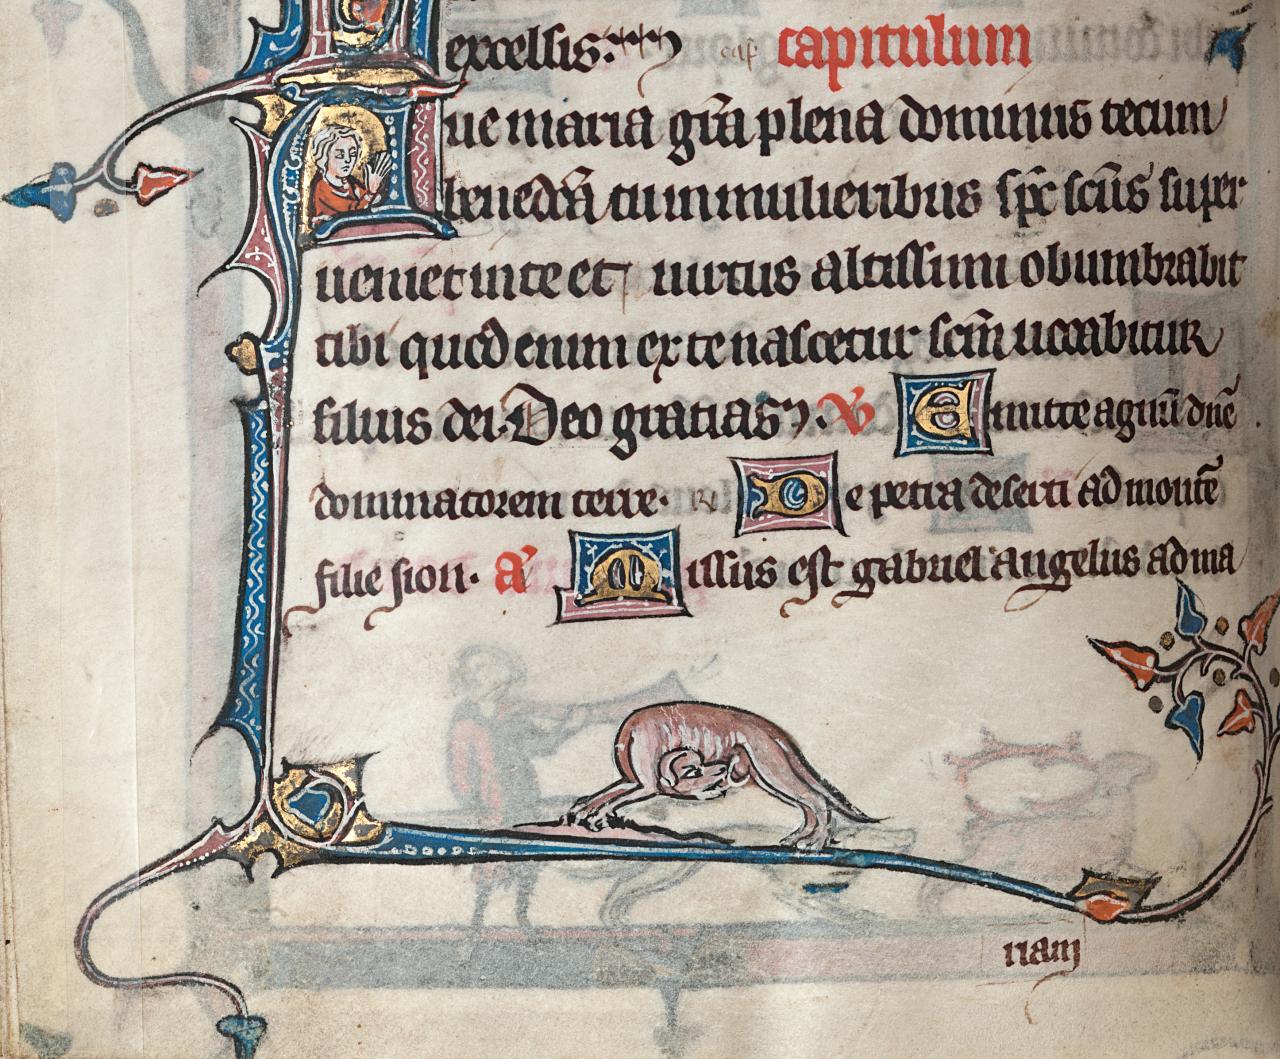 excelsis. cap capitulum
Aue maria gr̄a plena dominus tecum
benedc̄a tu in mulieribus sp̄c sc̄us super
ueniet in te et uirtus altissimi obumbrabit
tibi quod enim ex te nascetur sc̄m uocabitur
filius dei. Deo gratias. V Emitte agnū dn̄e
dominatorem terre. R De petra deserti ad montē
filie sion. a Missus est gabriel angelus ad ma
riam